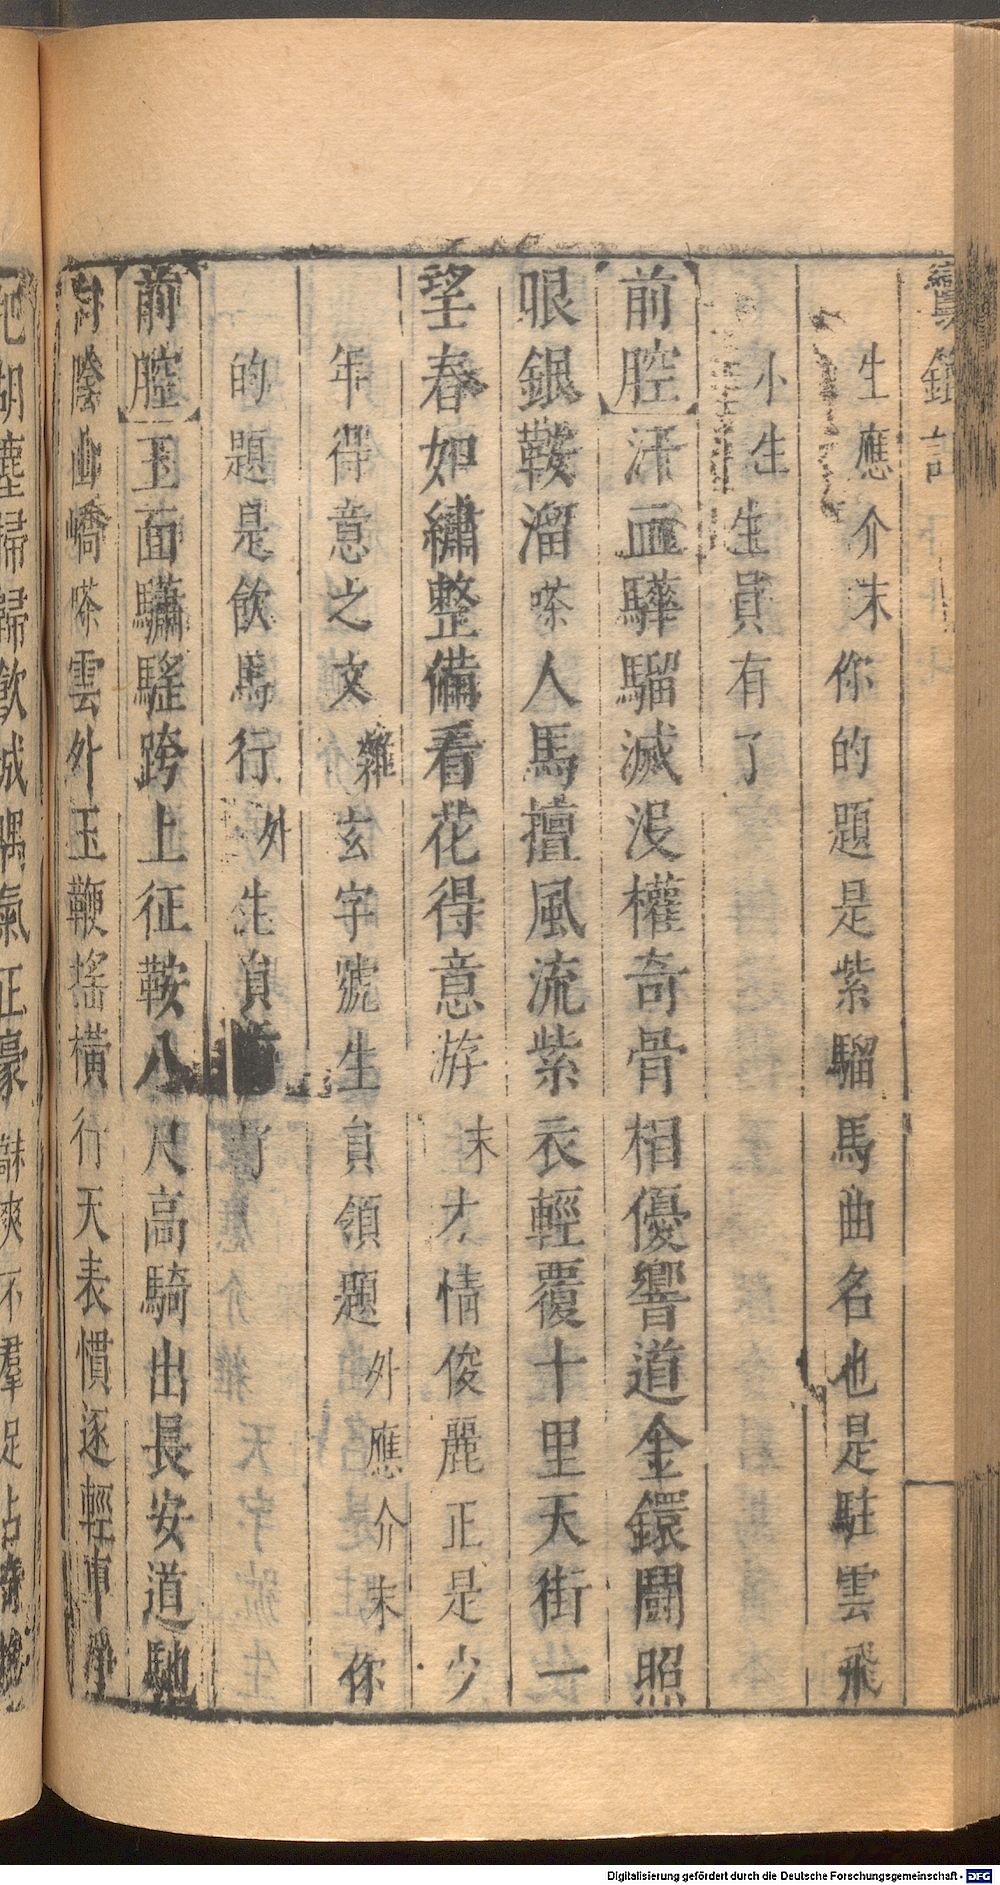 生應介末你的題是紫騮馬曲名也是駐雲飛
小生生員有了
前腔汗血驊騮滅沒權奇骨相優響道金鐶鬪照
眼銀鞍溜嗏人馬擅風流紫衣輕覆十里天街一
望春如繡整備看花得意游末才情俊麗正是少
年得意之文雜玄字號生員領題外應介末你
的題是飲馬行外生員
前腔玉面驌騣跨上征鞍八尺高騎出長安道馳
陰山嶠嗏雲外玉鞭搖橫行天表慣逐輕車
胡塵掃歸飲城隅氣正豪
不羣足占
Digitalisierung gefördert durch die Deutsche Forschungsgemeinschaft - DFG